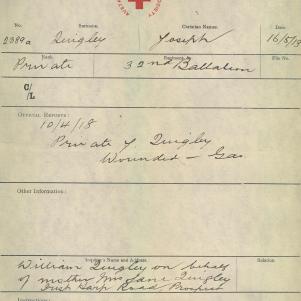 No. Surname. Christian Names. Date.
2389a Quigley Joseph 16/5/18
Rank. Regiment. File No.
Private 32nd Battalion
C/
/L
OFFICIAL REPORTS:
10/4/18
Private J Quigley
Wounded - Gas
Other Information:
Inquirer's Name and Address. Relation
William Quigley on behalf
of mother Mrs Jane Quigley
Road, Prospect
Instructions: